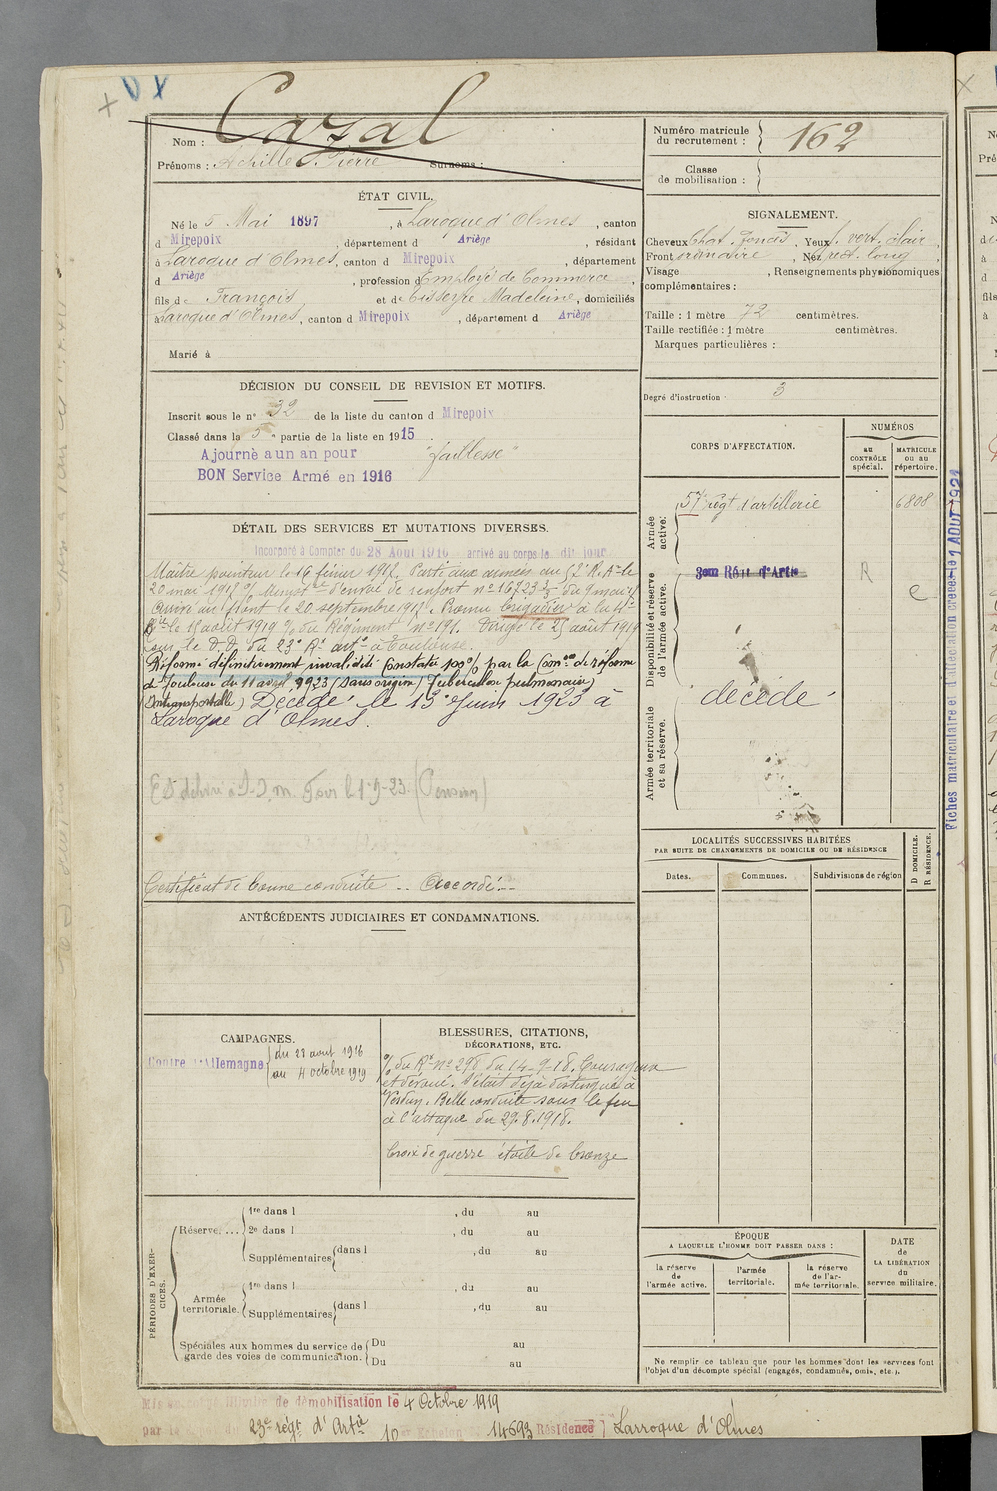 Cazal
Nom :
Prénoms : Achille Pierre Surnoms :
Numéro matricule du recrutement : 162
Classe de mobilisation :
ÉTAT CIVIL.
Né le 5 Mai 1897, à Laroque d'Olmes, canton
d Mirepoix, département d Ariège, résidant
à Laroque d'Olmes, canton d Mirepoix, département
d Ariège, profession d Employé de Commerce,
fils de François et de Tisseyre Madeleine, domiciliés
à Laroque d'Olmes, canton d Mirepoix, département d Ariège
Marié à
SIGNALEMENT.
Cheveux Chat. foncés, Yeux vert clair,
Front ordinaire, Nez rect. long,
Visage , Renseignements physionomiques
complémentaires :
Taille : 1 mètre 72 centimètres.
Taille rectifiée : 1 mètre centimètres.
Marques particulières :
Degré d'instruction 3
DÉCISION DU CONSEIL DE REVISION ET MOTIFS.
Inscrit sous le n° 32 de la liste du canton d Mirepoix
Classé dans la 5e partie de la liste en 1915.
Ajourné a un an pour "faiblesse"
BON Service Armé en 1916
CORPS D'AFFECTATION.
NUMÉROS
AU CONTRÔLE spécial.
MATRICULE ou au répertoire.
Armée active.
57e régt d'artillerie 6808
Disponibilité et réserve de l'armée active.
3eme Rég d'Artie R
Armée territoriale et sa réserve.
décédé
DÉTAIL DES SERVICES ET MUTATIONS DIVERSES.
Incorporé à Compter du 28 Aout 1916 arrivé au corps le dit jour
Maître pointeur le 16 février 1917. Parti aux armées au
20 mai 1917
Arrivé au front le 20 septembre 1917. Promu brigadier à la
le 15 août 1919 % du Régiment n° 191. Dirigé le 25 août 1919
sur le D.D. du 23e Rt arte à Toulouse.
Réformé définitivement invalidité constatée 100% par la Comon de réforme
de Toulouse du 11 avril 1923 (Sans origine) Tuberculose pulmonaire
(Intransportable) Décédé le 13 Juin 1923 à
Laroque d'Olmes.
Certificat de bonne conduite .. Accordé...
ANTÉCÉDENTS JUDICIAIRES ET CONDAMNATIONS.
LOCALITÉS SUCCESSIVES HABITÉES
PAR SUITE DE CHANGEMENTS DE DOMICILE OU DE RÉSIDENCE
Dates.
Communes.
Subdivisions de région
D DOMICILE.
R RÉSIDENCE.
CAMPAGNES.
Contre l'Allemagne
du 28 aout 1916
au 4 octobre 1919
BLESSURES, CITATIONS,
DÉCORATIONS, ETC.
% du Rt n° 298 du 14-9-18. Courageux
et dévoué. S'était déjà distingué à
Verdun. Belle conduite sous le feu
à l'attaque du 29.8.1918.
Croix de guerre étoile de bronze
PÉRIODES D'EXERCICES.
Réserve.... 1re dans l , du au
2e dans l , du au
Supplémentaires dans l , du au
Armée territoriale. 1re dans l , du au
Supplémentaires dans l , du au
Spéciales aux hommes du service de garde des voies de communication. Du au
Du au
ÉPOQUE
A LAQUELLE L'HOMME DOIT PASSER DANS :
la réserve de l'armée active.
l'armée territoriale.
la réserve de l'armée territoriale.
DATE de LA LIBÉRATION du service militaire.
Ne remplir ce tableau que pour les hommes dont les services font
l'objet d'un décompte spécial (engagés, condamnés, omis, etc.).
Mis en congé illimité de démobilisation le 4 Octobre 1919
par 23e régt d'Artie 10 Echelon 14693 Résidence Larroque d'Olmes
Fiches matriculaire et d'affectation créées le 1 AOUT 1921